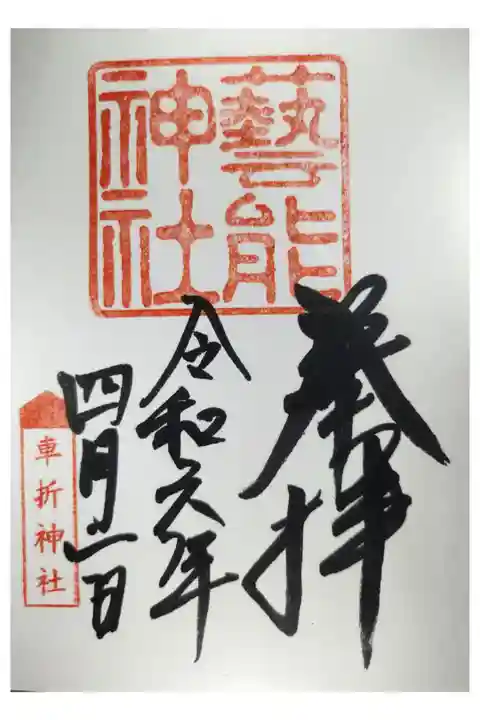 藝能
神社
奉拝
令和六年
四月二日
車折神社